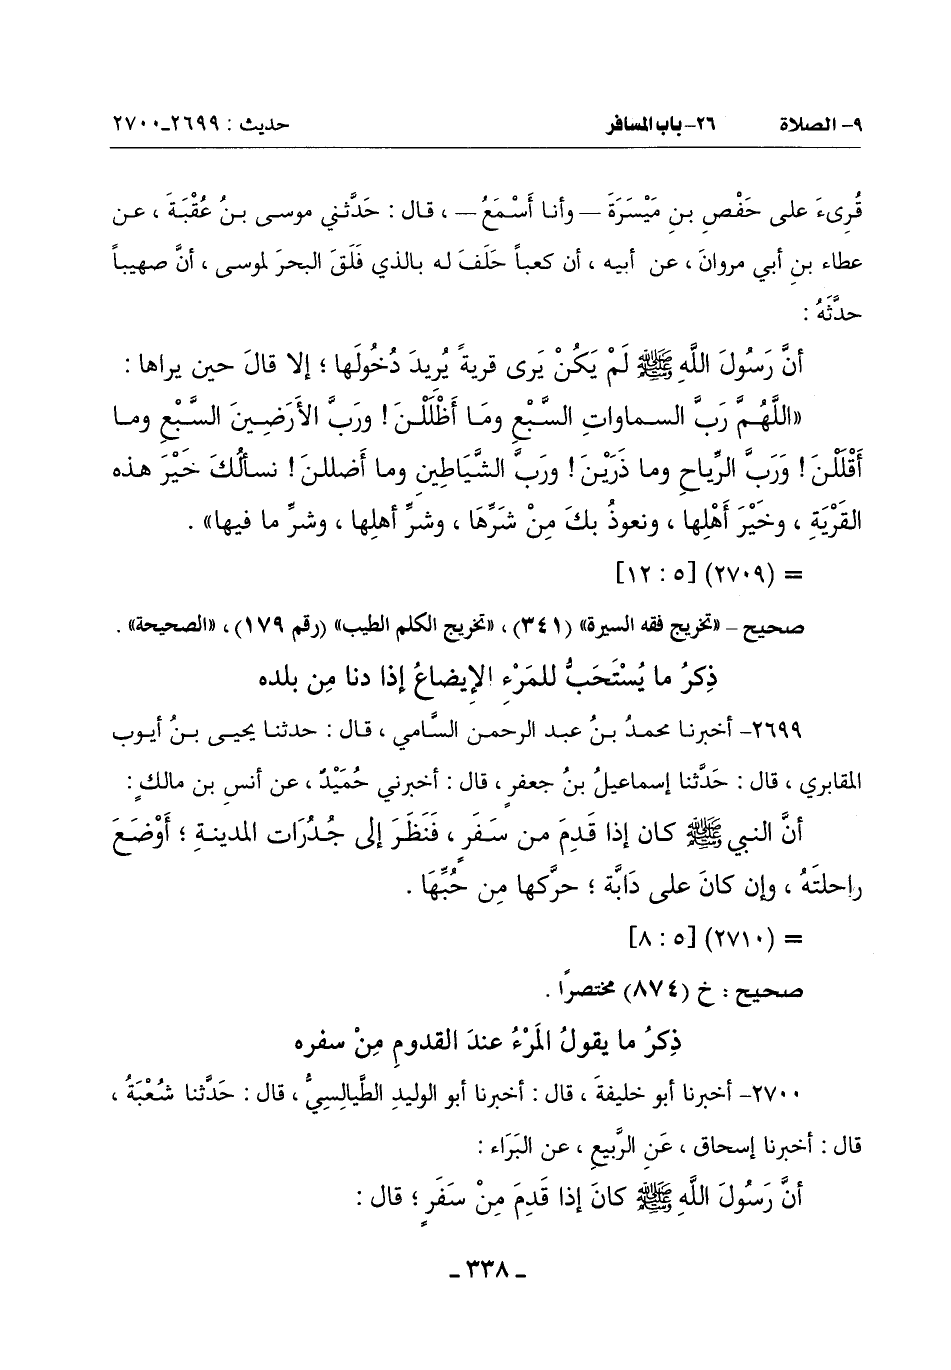 ٩- الصلاة ٢٦- باب المسافر حديث : ٢٦٩٩-٢٧٠٠
قُرِىءَ على حَفْصِ بنِ مَيْسَرَةَ – وأنا أَسْمَعُ – ، قال : حَدَّثني موسى بنُ عُقْبَةَ ، عن
عطاء بنِ أبي مروانَ ، عن أبيه ، أن كعباً حَلَفَ له بالذي فَلَقَ البحرَ لموسى ، أنَّ صهيباً
حدَّثَهُ :
أنَّ رَسُولَ اللَّهِ ﷺ لَمْ يَكُنْ يَرى قريةً يُريدَ دُخُولَها ؛ إلا قالَ حين يراها :
«اللَّهُمَّ رَبَّ السماواتِ السَّبْعِ ومَا أَظْلَلْنَ ! ورَبَّ الأَرَضِينَ السَّبْعِ وما
أَقْلَلْنَ ! وَرَبَّ الرِّياحِ وما ذَرَيْنَ ! ورَبَّ الشَّيَاطِينِ وما أَضللنَ ! نسألُكَ خَيْرَ هذه
القَرْيَةِ ، وخَيْرَ أَهْلِها ، ونعوذُ بكَ مِنْ شَرِّهَا ، وشرِّ أهلِها ، وشرِّ ما فيها» .
= (٢٧٠٩) [٥ : ١٢]
صحيح – «تخريج فقه السيرة» (٣٤١) ، «تخريج الكلم الطيب» (رقم ١٧٩) ، «الصحيحة» .
ذِكرُ ما يُسْتَحَبُّ للمَرْءِ الإيضاعُ إذا دنا مِن بلده
٢٦٩٩- أخبرنا محمدُ بنُ عبد الرحمن السَّامي ، قال : حدثنا يحيى بنُ أيوب
المقابري ، قال : حَدَّثنا إسماعيلُ بنُ جعفرٍ ، قال : أخبرني حُمَيْدٌ ، عن أنسِ بن مالكٍ :
أنَّ النبي ﷺ كان إذا قَدِمَ من سَفَرٍ ، فَنَظَرَ إلى جُدُرَات المدينةِ ؛ أَوْضَعَ
راحلتَهُ ، وإن كانَ على دَابَّة ؛ حرَّكها مِن حُبِّهَا .
= (٢٧١٠) [٥ : ٨]
صحيح : خ (٨٧٤) مختصراً .
ذِكرُ ما يقولُ المَرْءُ عندَ القدومِ مِنْ سفره
٢٧٠٠- أخبرنا أبو خليفةَ ، قال : أخبرنا أبو الوليدِ الطَّيالِسِيُّ ، قال : حَدَّثنا شُعْبَةُ ،
قال : أخبرنا إسحاق ، عَنِ الرَّبيعِ ، عن البَرَاء :
أنَّ رَسُولَ اللَّهِ ﷺ كانَ إذا قَدِمَ مِنْ سَفَرٍ ؛ قال :
- ٣٣٨ -